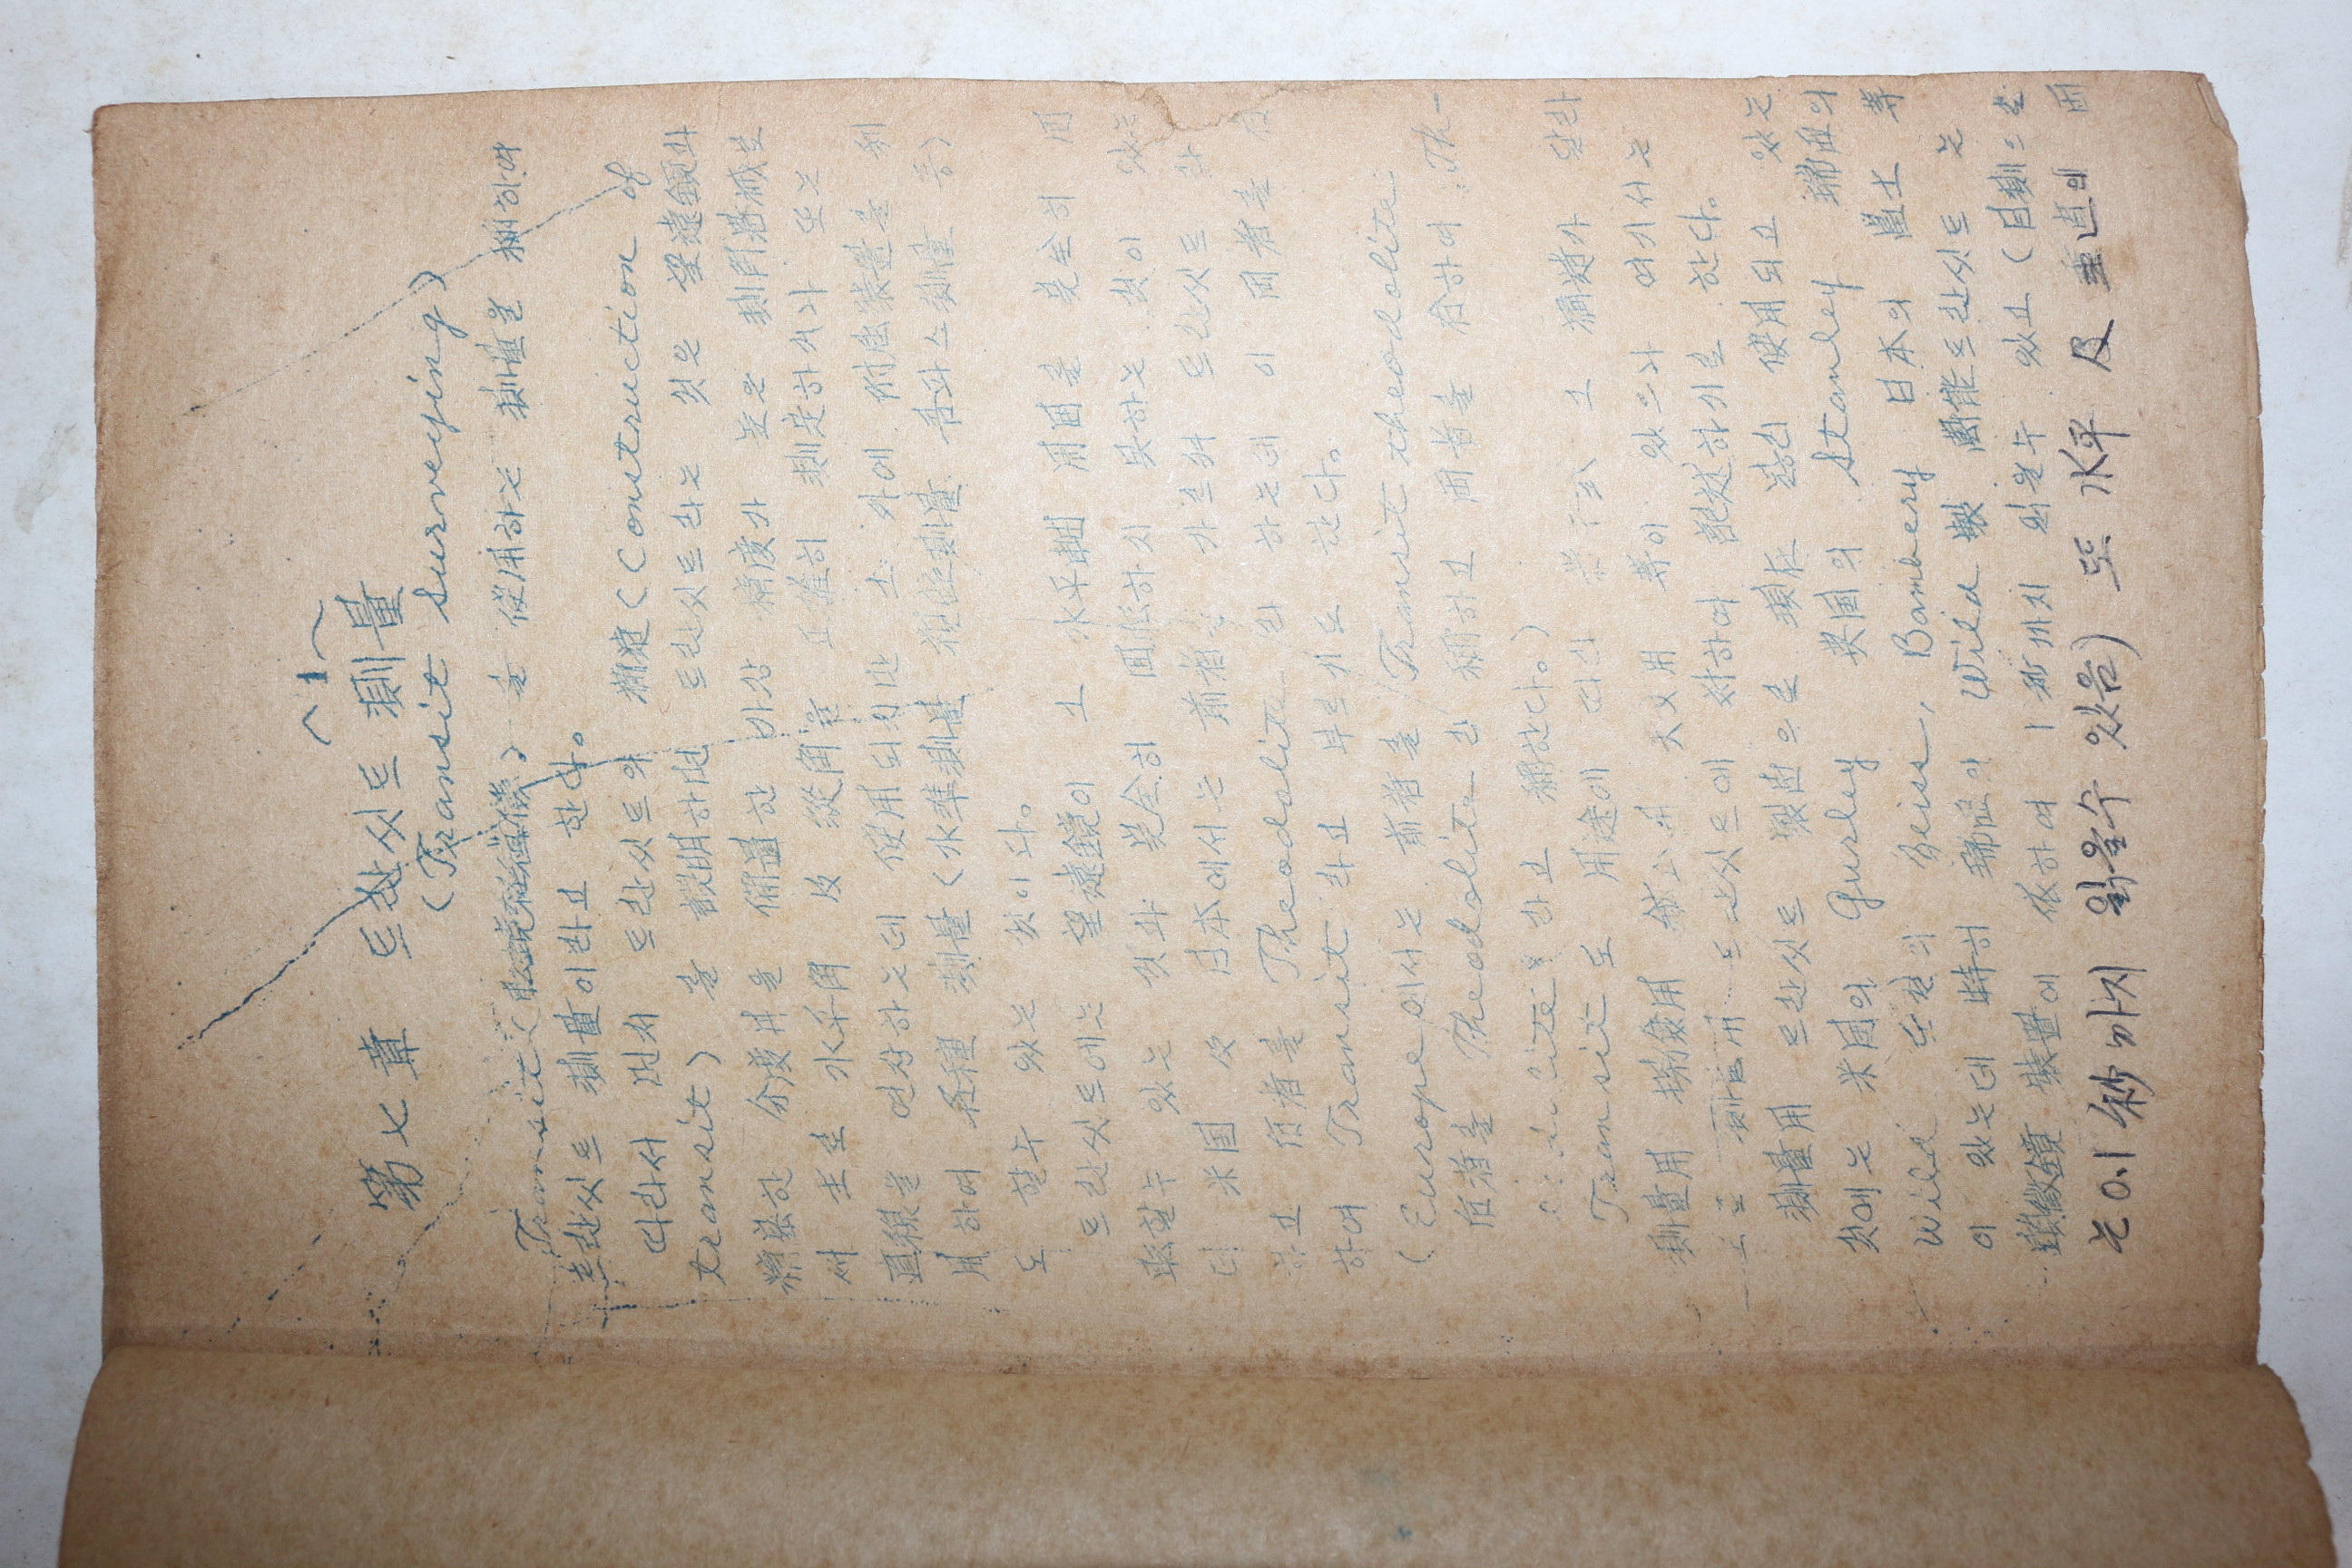 (1)
第七章 트란싯트 測量
(Transit Surveying)
Transit (轉鏡經緯儀) 을 使用하는 測量을 稱하여
트란싯트 測量이라고 한다。
따라서 먼저 트란싯트의 構造 (Construction of
transit) 을 說明하면 트란싯트라는 것은 望遠鏡과
精密한 分度井을 備置한 가장 精度가 높은 測角器械로
써 主로 水平角 及 縱角을 正確히 測定하거나 또는
直線을 연장하는데 使用되지만 그 外에 附屬裝置를 利
用하여 各種 測量 (水準測量 視距測量 콤파스測量 등)
도 할수 있는 것이다。
트란싯트에는 望遠鏡이 그 水平軸 周囲를 完全히 回
転할수 있는 것과 完全히 回転하지 못하는 것이 있는
데 米国 及 日本에서는 前者를 가르켜 트란싯트라
하고 后者를 Theodolite라 하는데 이 両者를 合
하여 Transit라고 부르기도 한다。
(Europe에서는 前者를 Transit theodolite
后者를 Theodolite라 稱하고 両者를 合하여 Th-
라고 稱한다。)
Transit도 用途에 따라 그 構造가 달라
測量用 探鑛用 鉱山用 天文用 等이 있으나 여기서는
測量用 트란싯트에 対하여 記述하기로 한다。
測量用 트란싯트 製品으로 現在 많이 使用되고 있는
것에는 米国의 Gurley 英国의 Stanley 瑞西의
Wild 独逸의 Zeiss, Bambery 日本의 富士 等
이 있는데 特히 瑞西의 Wild 製 萬能트란싯트는
顕微鏡 裝置에 依하여 1秒까지 읽을수 있고 (目測으로
는 0.1秒까지 읽을수 있음) 또 水平 及 垂直의 両